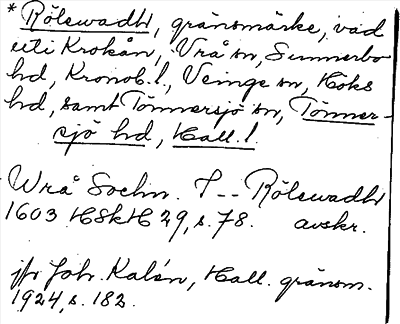 * Rölswadh, gränsmärke, vad
uti Krokån, Vrå sn, Sunnerbo
hd, Kronob. l., Veinge sn, Höks
hd, samt Tönnersjö sn, Tönner-
sjö hd, Hall. l.
Wrå Sochn. T-- Rölswadh
1603 HSkH 29, s. 78. avskr.
jfr Joh. Kalén, Hall. gränsm.
1924, s. 182.